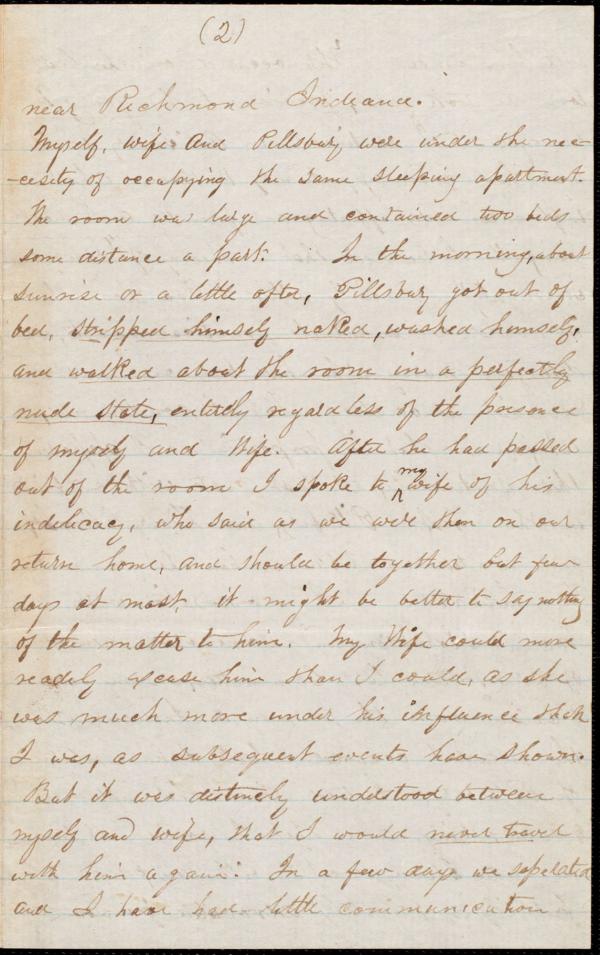 (2)
near Richmond Indiana.
Myself, wife And Pillsbury were under the nec-
-cesity of occupying the same sleeping apartment.
The room was large and contained two beds
some distance a part. In the morning, about
sunrise or a little after, Pillsbury got out of
bed, stripped himself naked, washed himself,
and walked about the room in a perfectly
nude state, entirely regardless of the presence
of myself and Wife. After he had passed
out of the room I spoke to my wife of his
indelicacy, who said as we were then on our
return home, and should be together but few
days at most, it might be better to say nothing
of the matter to him. My Wife could more
readily excuse him than I could, as she
was much more under his influence than
I was, as subsequent events have shown.
But it was distinctly understood between
myself and wife, that I would never travel
with him again. In a few days we seperated
and I have had little communication